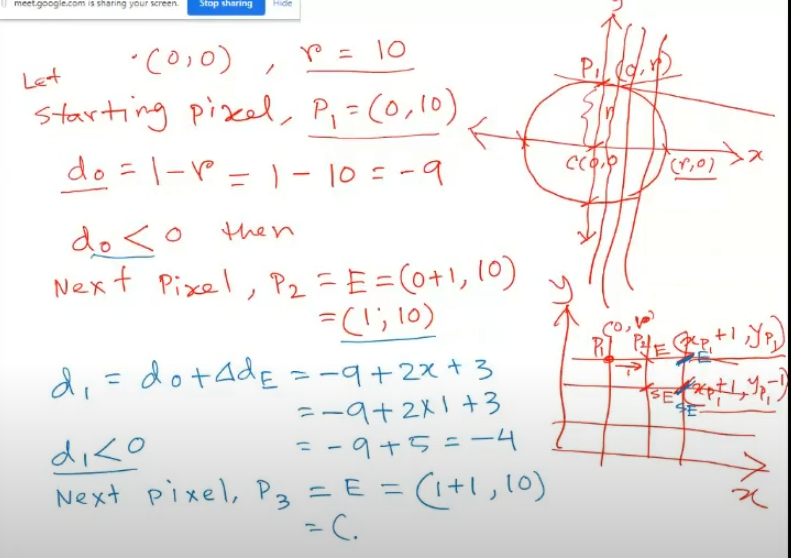 meet.google.com is sharing your screen. Stop sharing Hide
Let · (0,0) , r = 10
Starting pixel, P₁ = (0,10)
d₀ = 1-r = 1 - 10 = -9
d₀ < 0 then
Next Pixel, P₂ = E = (0+1, 10)
= (1, 10)
d₁ = d₀ + ΔdE = -9 + 2x + 3
= -9 + 2x1 + 3
d₁<0 = -9 + 5 = -4
Next pixel, P₃ = E = (1+1, 10)
= (.
y
P₁ (0, r)
r
C(0,0 (r,0) x
y
(0, r)
P₁ P₂ E (xP₁+1, yP₁)
E
SE (xP₁+1, yP₁-1)
SE
x